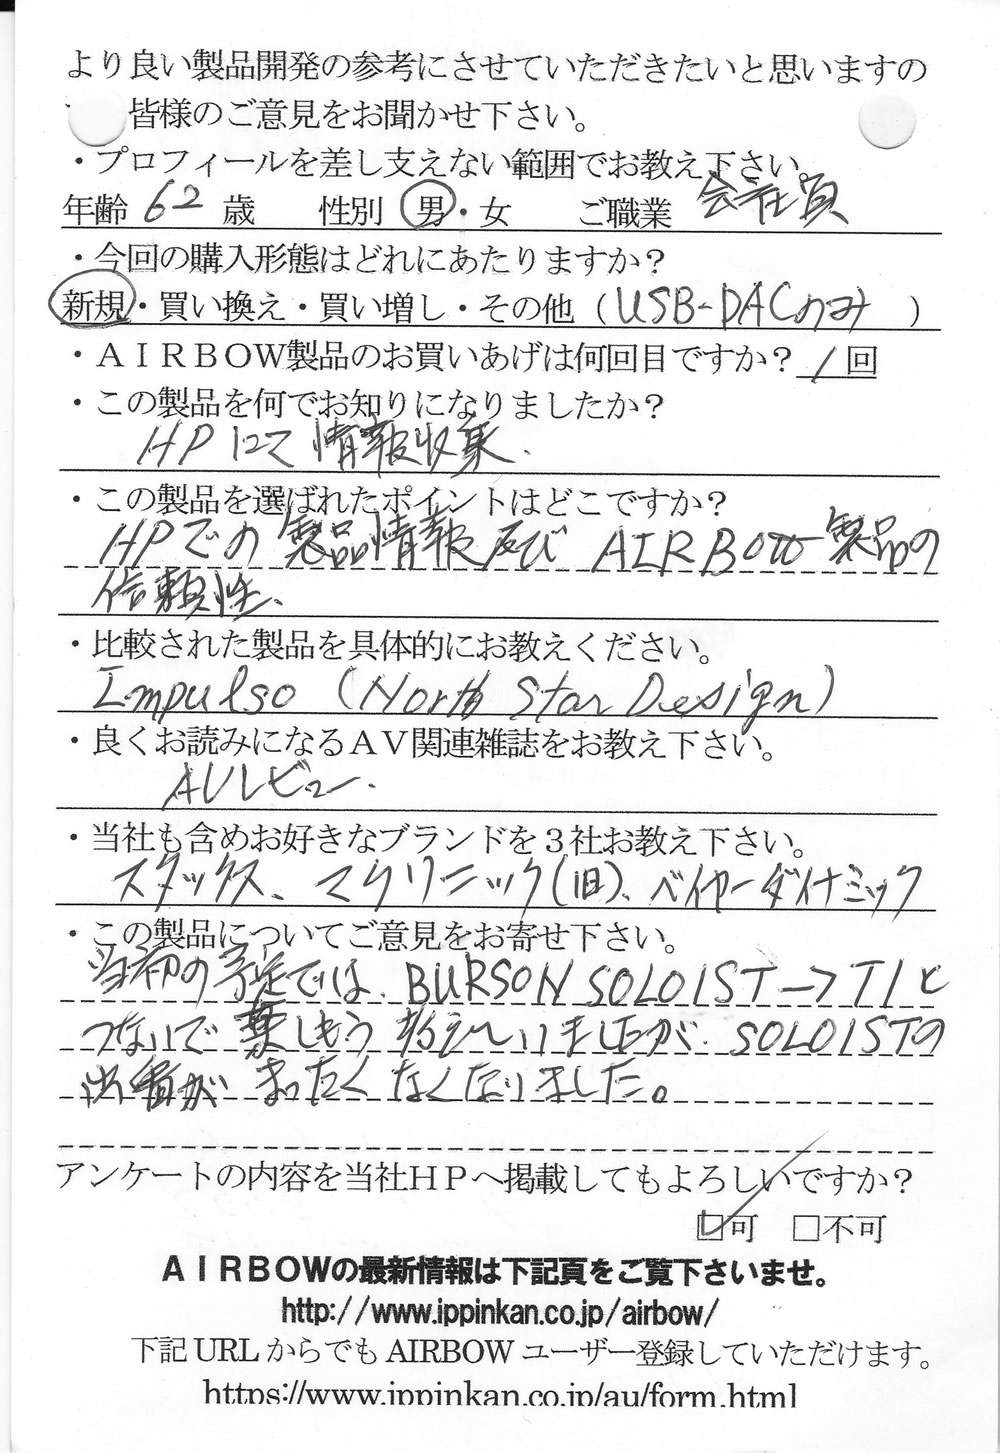 より良い製品開発の参考にさせていただきたいと思いますの
皆様のご意見をお聞かせ下さい。
・プロフィールを差し支えない範囲でお教え下さい。
年齢 62 歳 性別 男・女 ご職業 会社員
・今回の購入形態はどれにあたりますか?
新規・買い換え・買い増し・その他(USB-DACのみ )
・AIRBOW製品のお買いあげは何回目ですか? 1回
・この製品を何でお知りになりましたか?
HPにて情報収集.
・この製品を選ばれたポイントはどこですか?
HPでの製品情報及び AIRBOW製品の
信頼性、
・比較された製品を具体的にお教えください。
Impulso (North Star Design)
・良くお読みになるAV関連雑誌をお教え下さい。
AVレビュー.
・当社も含めお好きなブランドを3社お教え下さい。
スタックス、マクリニック(旧)、ベイヤーダイナミック
・この製品についてご意見をお寄せ下さい。
当初の予定では、BURSON SOLOIST→T1と
つないで楽しもう 考えていましたが、SOLOISTの
出番が まったく なくなりました。
アンケートの内容を当社HPへ掲載してもよろしいですか?
☑可 □不可
AIRBOWの最新情報は下記頁をご覧下さいませ。
http://www.ippinkan.co.jp/airbow/
下記URLからでもAIRBOWユーザー登録していただけます。
https://www.ippinkan.co.jp/au/form.html